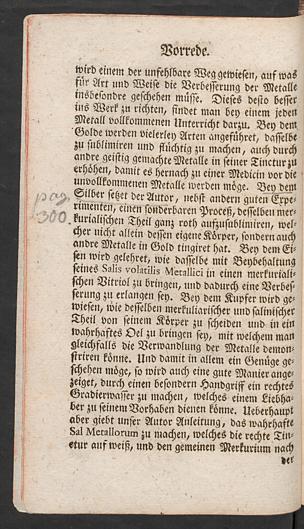 Vorrede.
wird einem der unfehlbare Weg gewiesen, auf was
für Art und Weise die Verbesserung der Metalle
insbesondre geschehen müsse. Dieses desto besser
ins Werk zu richten, findet man bey einem jeden
Metall vollkommenen Unterricht darzu. Bey dem
Golde werden vielerley Arten angeführet, dasselbe
zu sublimiren und flüchtig zu machen, auch durch
andre geistig gemachte Metalle in seiner Tinctur zu
erhöhen, damit es hernach zu einer Medicin vor die
unvollkommenen Metalle werden möge. Bey dem
Silber setzet der Autor, nebst andern guten Expe-
rimenten, einen sonderbaren Proceß, desselben mer-
kurialischen Theil ganz roth aufzusublimiren, wel-
cher nicht allein dessen eigene Körper, sondern auch
andre Metalle in Gold tingiret hat. Bey dem Ei-
sen wird gelehret, wie dasselbe mit Beybehaltung
seines Salis volatilis Metallici in einen merkuriali-
schen Vitriol zu bringen, und dadurch eine Verbes-
serung zu erlangen sey. Bey dem Kupfer wird ge-
wiesen, wie desselben merkurialischer und salinischer
Theil von seinem Körper zu scheiden und in ein
wahrhaftes Oel zu bringen sey, mit welchem man
gleichfalls die Verwandlung der Metalle demon-
striren könne. Und damit in allem ein Genüge ge-
schehen möge, so wird auch eine gute Manier ange-
zeiget, durch einen besondern Handgriff ein rechtes
Gradierwasser zu machen, welches einem Liebha-
ber zu seinem Vorhaben dienen könne. Ueberhaupt
aber giebt unser Autor Anleitung, das wahrhafte
Sal Metallorum zu machen, welches die rechte Tin-
ctur auf weiß, und den gemeinen Merkurium nach
der
pag.
300.